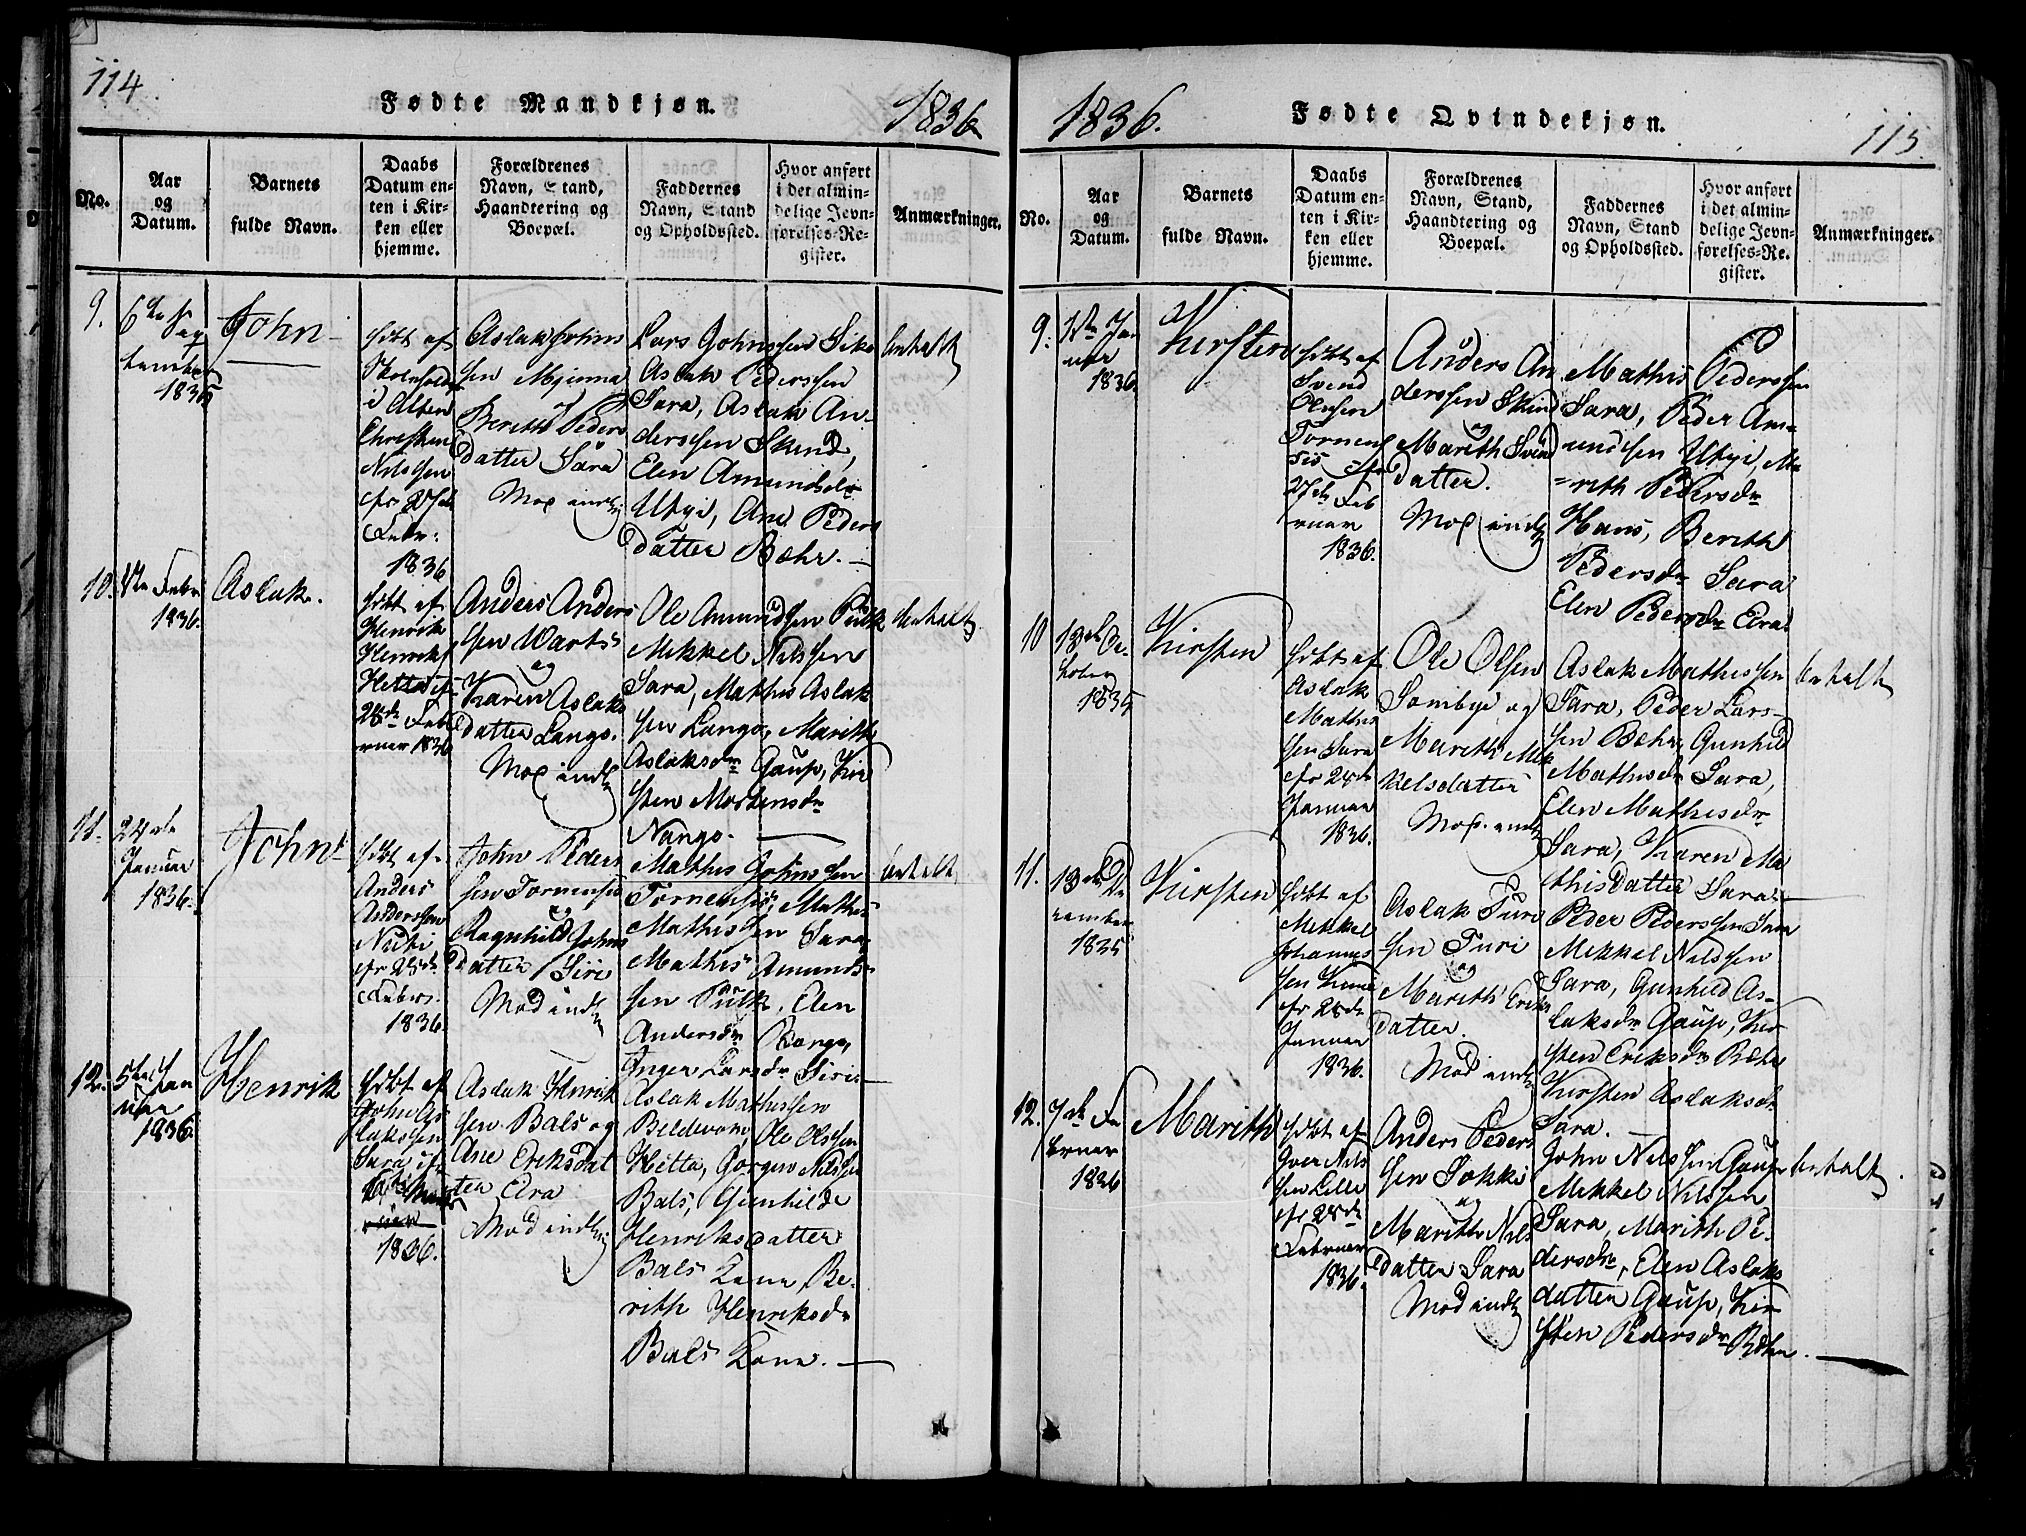 114.
Fødte Mandkjøn.
1836
No.
Aar
og
Datum.
Barnets
fulde Navn.
Daabs
Datum en-
ten i Kir-
ken eller
hjemme.
Forældrenes
Navn, Stand,
Haandtering og
Boepæl.
Faddernes
Navn, Stand
og Opholdssted.
Hvor anført
i det almin-
delige Jevn-
førelses-Re-
gister.
Anmærkninger.
9.
6te Sep
tember
1835
John
døbt af
Skoleholder
i Alten
Christian
Nilssen
efr 27de
Febr:
1836
Aslak Johns
sen Mienna
og
Berith Peders
datter Sara
Lars Johnssen Siko
Aslak Pederssen
Sara, Aslak An-
derssen Skind,
Elen Amundsdr
Utsyi, Ane Peders
datter Bæhr. —
10.
Febr
1836.
Aslak.
døbt af
Henrik
Henriks
Hetta ef
28de Feb
ruar 1836
Anders Anders
sen Warts
og
Karen Aslaks
datter Lango.
Ole Amundssen Pulk
Mekkel Nilssen
Sara, Mathis Aslak
sen Lango, Marith
Aslaksdr Gaup, Kir
sten Mortensdr
Nango. —
11.
24de
Januar
1836.
John
døbt af
Anders
Anderssen
efr 28de
Febers.
1836.
John Peders
sen Tornensis
og
Ragnhild Johns
datter Siri
Mathis Johnssen
Tornensis, Mathis
Mathissen Sara
Mathis Amunds-
sen Pulk, Elen
Andersdr Rango,
Inger Larsdr Siri —
12.
5te Jan
uar
1836.
Henrik
døbt af
John As
lakssen
Sara efr
1836.
Aslak Henrik
sen Bals og
Ane Eriksdat
ter Eira
Aslak Mathissen
Beldevom, Ole Olssen
Hetta, Gorgen Nilssen
Bals, Gunhilde
Henriksdatter
Bals Kone, Be-
rith Henriksdr
Bals Kone. —
1836.
Fødte Qvindekjøn.
115.
No.
Aar
og
Datum.
Barnets
fulde Navn.
Daabs
Datum en-
ten i Kir-
ken eller
hjemme.
Forældrenes
Navn, Stand,
Haandtering og
Boepæl.
Faddernes
Navn, Stand
og Opholdssted.
Hvor anført
i det almin-
delige Jevn-
førelses-Re-
gister.
Anmærkninger.
9.
Jan
uar
1836.
Kirsten
døbt af
Svend
Olessen
Tornen
sis efr
27de Feb
ruar
1836.
Anders An
derssen Skin
og
Marith Svens
datter.
Mathis Pederssen
Sara, Peder Am-
undssen Utsyi, Ma
rith Pedersdr
Hans, Berith
Pedersdr Sara
Elen Pedersdr Eira.
10
18de Oc-
tober
1835
Kirsten
døbt af
Aslak
Mathis
sen Sara
efr 28de
Januar
1836.
Ole Olsen
Sombyi og
Marith Mek
kelsdatter
Aslak Mathissen
Sara, Peder Lars-
sen Bæhr, Gunhild
Mathisdr Sara,
Elen Mathisdr
Sara, Karen Ma
thisdatter Sara. —
11.
13de De
cember
1835
Kirsten
døbt af
Mekkel
Johannes
sen
efr 28de
Januar
1836.
Aslak Turi
sen Turi
og
Marith Eriks
datter.
Peder Pederssen Sara
Mekkel Nilssen
Sara, Gunhild As-
laksdr Gaup, Kir
sten Eriksdr Bæhr
Kirsten Aslaksdr
Sara. —
12.
7de Fe
bruar
1836
Marith
døbt af
Iver Nils
sen Lille
efr 28de
Februar
1836.
Anders Peders
sen Sokki
og
Marith Nils
datter Sara
John Nilssen Gaup
Mekkel Nilssen
Sara, Marith Pe-
dersdr, Elen Aslaks
datter Gaup, Kir
sten Pedersdr Bæhr. —